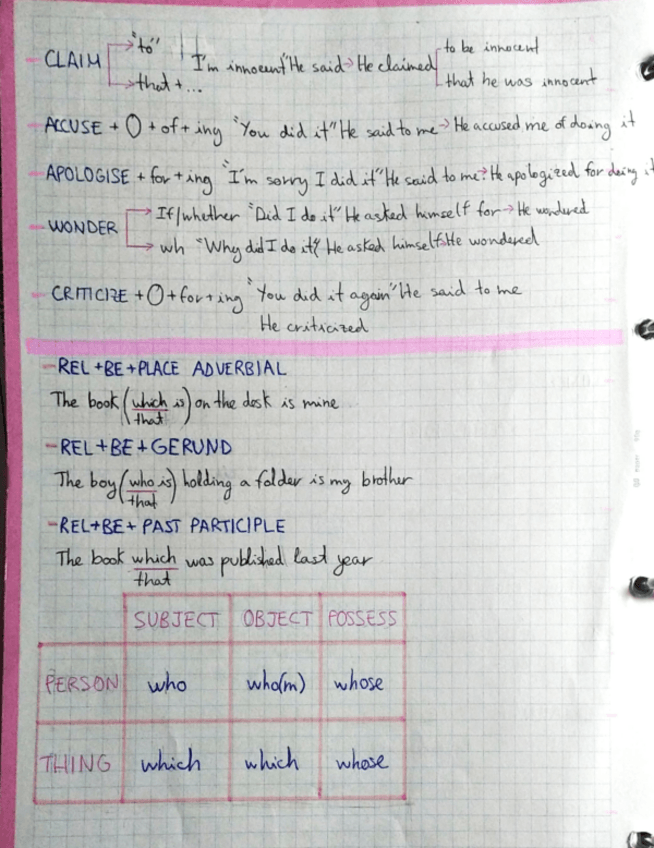 - CLAIM → "to" "I'm innocent" He said → He claimed to be innocent
→ that + ... that he was innocent
- ACCUSE + O + of + ing "You did it" He said to me → He accused me of doing it
- APOLOGISE + for + ing "I'm sorry I did it" He said to me → He apologized for doing it
- WONDER → If/whether "Did I do it" He asked himself for → He wondered
→ wh "Why did I do it?" He asked himself → He wondered
- CRITICIZE + O + for + ing "You did it again" He said to me
He criticized
- REL + BE + PLACE ADVERBIAL
The book (which is) on the desk is mine
that
- REL + BE + GERUND
The boy (who is) holding a folder is my brother
that
- REL + BE + PAST PARTICIPLE
The book which was published last year
that
SUBJECT OBJECT POSSESS
PERSON who who(m) whose
THING which which whose